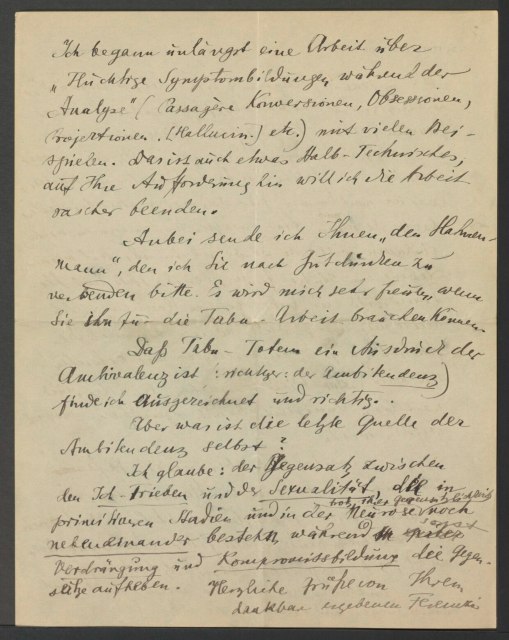 Ich begann unlängst eine Arbeit über
"Flüchtige Symptombildungen während der
Analyse" (Passagère Konversionen, Obsessionen,
Projektionen, (Hallucin.) etc.) mit vielen Bei-
spielen. Das ist auch etwas Halb-Technisches,
auf Ihre Aufforderung hin will ich die Arbeit
rascher beenden.
Anbei sende ich Ihnen "den Hahnen-
mann", den ich Sie nach Gutdünken zu
verwenden bitte. Es wird mich sehr freuen, wenn
Sie ihn für die Tabu-Arbeit brauchen können.
Daß Tabu-Totem ein Ausdruck der
Ambivalenz ist (richtiger: der Ambitendenz)
finde ich ausgezeichnet und richtig.
Aber was ist die letzte Quelle der
Ambitendenz selbst?
Ich glaube: der Gegensatz zwischen
den Ich-Trieben und der Sexualität, die in
primitiven Stadien und in der Neurose noch
trotz ihrer Gegensätzlichkeit
nebeneinander bestehen während sonst
Verdrängung und Kompromissbildung die Gegen-
sätze aufheben. Herzliche Grüße von Ihrem
dankbar ergebenen Ferenczi